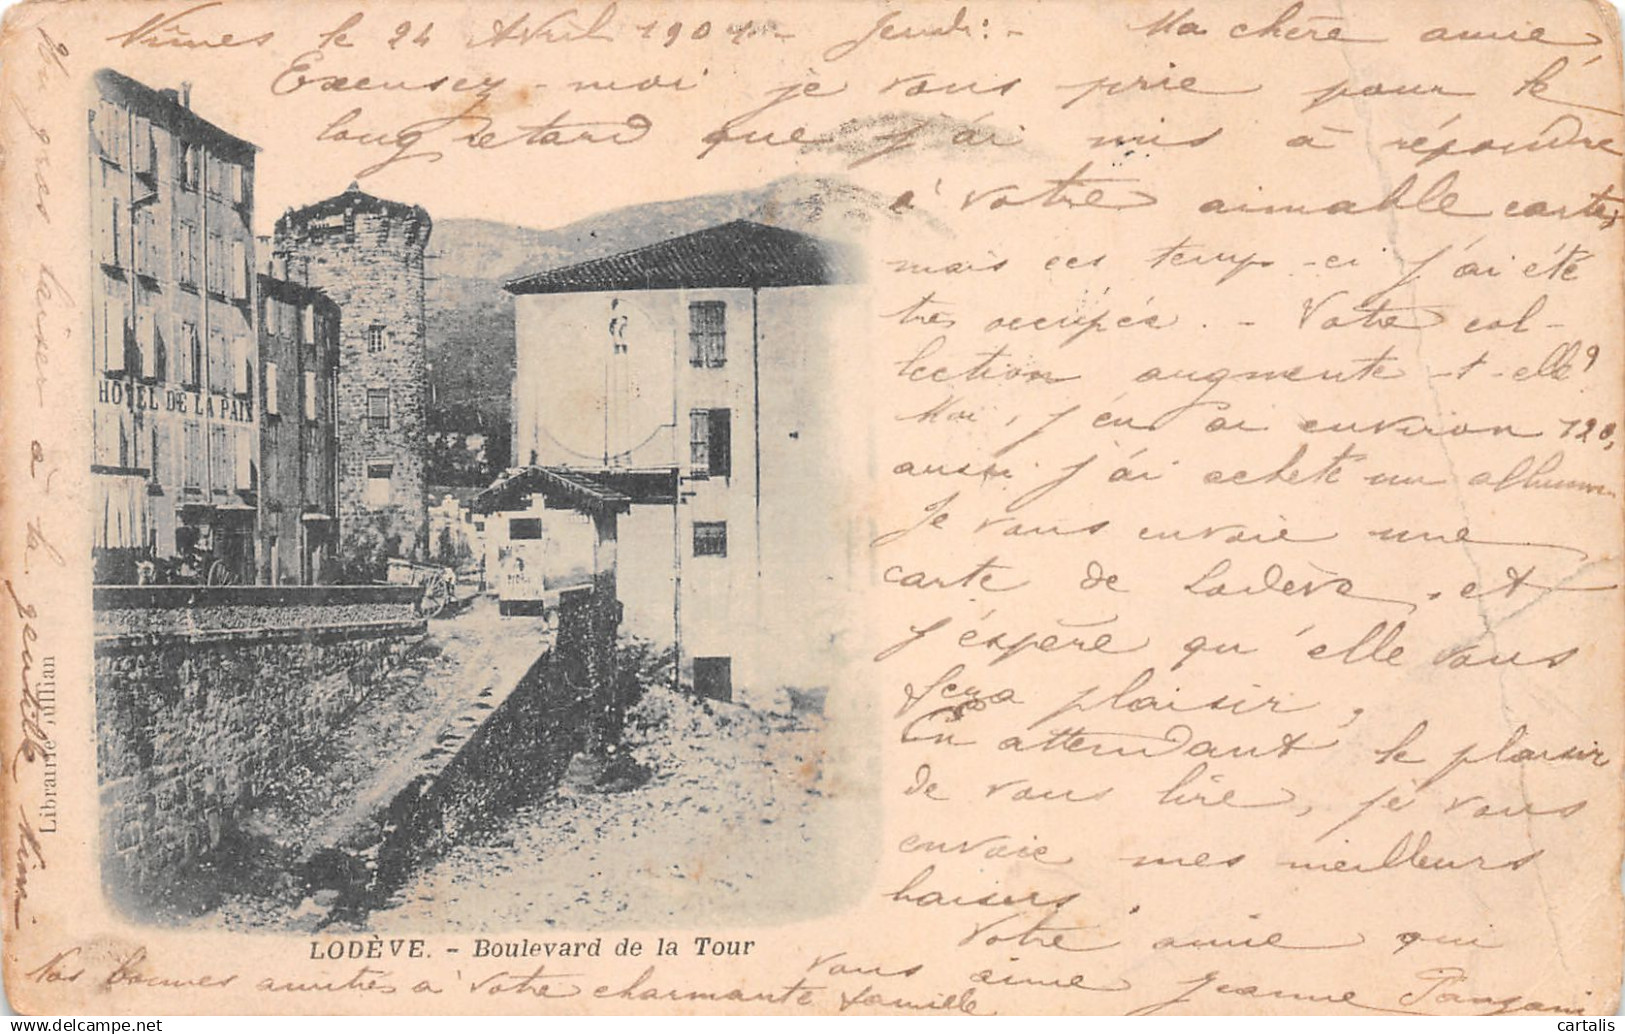 Nîmes le 24 Avril 1901 - Jeudi: - Ma chère amie
Excusez-moi je vous prie pour le
long retard que j'ai mis à répondre
à votre aimable carte,
mais ces temps-ci j'ai été
très occupée. - Votre col-
lection augmente-t-elle?
Moi, j'en ai environ 120,
aussi j'ai acheté un album
Je vous envoie une
carte de Lodève, et
j'espère qu'elle vous
fera plaisir,
En attendant le plaisir
de vous lire, je vous
envoie mes meilleurs
baisers.
Votre amie qui
vous aime Jeanne
Nos bonnes amitiés à votre charmante famille
Un gros baiser à la gentille Nini
HÔTEL DE LA PAIX
Librairie Jullian
LODÈVE. - Boulevard de la Tour
cartalis